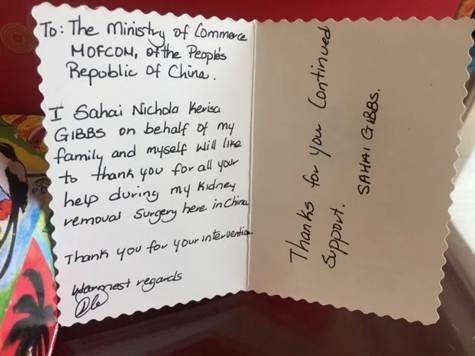 To: The Ministry of Commerce
MOFCON, of the People's
Republic Of China.
I Sahai Nichola Kerisa
GIBBS on behalf of my
family and myself will like
to thank you for all your
help during my kidney
removal surgery here in China
Thank you for your intervention
Warmest regards
Thanks for your Continued
Support.
SAHAI GIBBS.